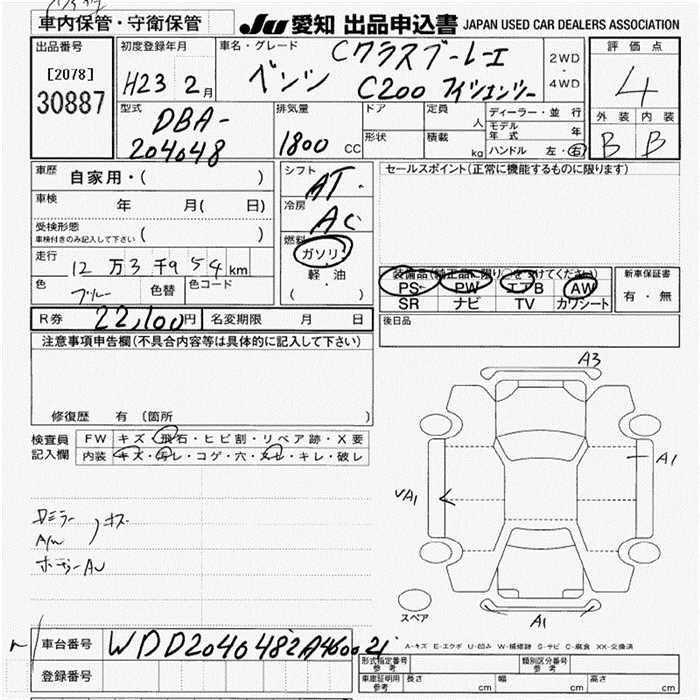 車内保管・守衛保管
JU 愛知 出品申込書 JAPAN USED CAR DEALERS ASSOCIATION
出品番号
[2078]
30887
初度登録年月
H23 2月
車名・グレード
ベンツ Cクラスブルーエ
C200
2WD
・
4WD
評価点
4
外装 内装
B B
型式
DBA-
204048
排気量
1800 CC
ドア
形状
定員 人
積載 kg
ディーラー・並行
モデル年式 年
ハンドル 左・右
車歴 自家用・( )
車検 年 月( 日)
受検形態
車検付きのみ記入して下さい ( )
走行
12万3千954km
色 ブルー 色替 色コード
シフト
AT
冷房
AC
燃料
ガソリン
軽・油
( )
セールスポイント(正常に機能するものに限ります)
装備品(純正品に限り○をつけてください)
PS PW エアB AW
SR ナビ TV カワシート
新車保証書
有・無
R券 22,100円 名変期限 月 日
後日品
注意事項申告欄(不具合内容等は具体的に記入して下さい)
修復歴 有 (箇所
検査員
記入欄
FW キズ・飛石・ヒビ割・リペア跡・X要
内装 キズ・汚レ・コゲ・穴・スレ・キレ・破レ
ミラー
A/W
キズ
A3
A1
A1
A1
スペア
A-キズ E-エクボ U-凹み W-補修跡 S-サビ C-腐食 XX-交換済
車台番号 WDD2040482A460021
登録番号
型式指定番号
参考
類別区分番号
参考
車庫証明用
参考
長さ cm 幅 cm 高さ cm